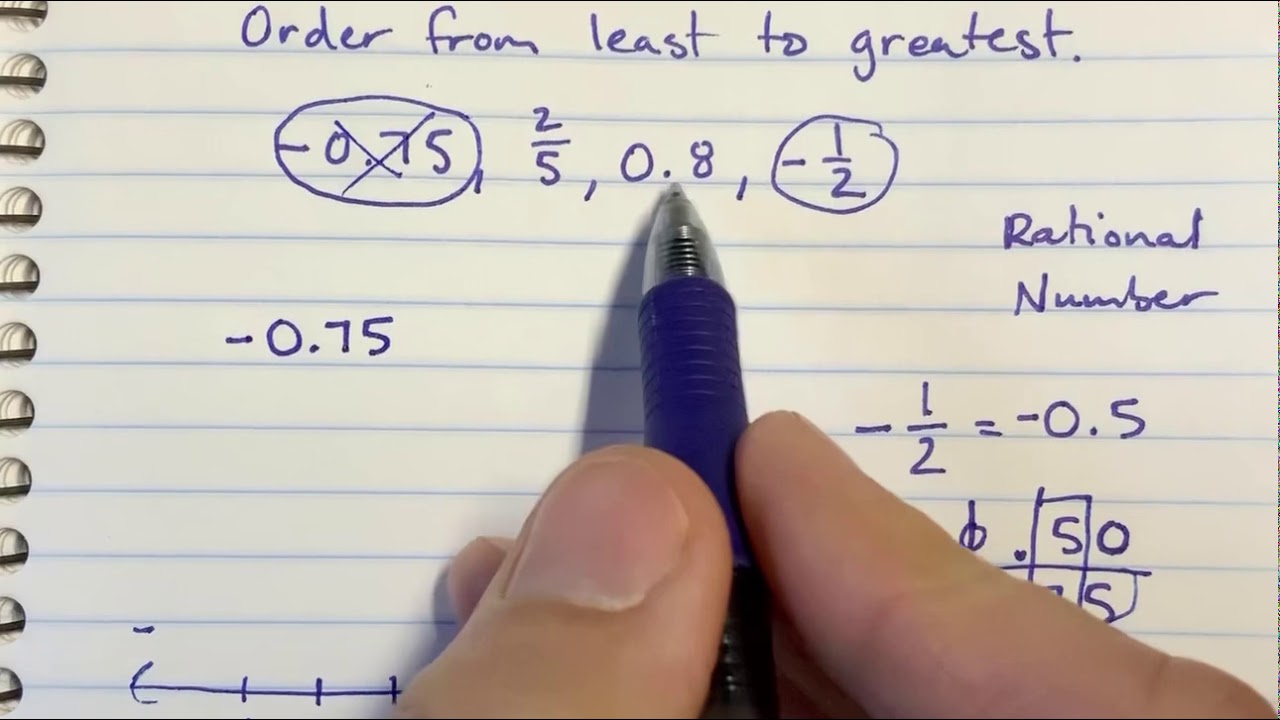 Order from least to greatest.
-0.75, 2/5, 0.8, -1/2
Rational
Number
-0.75
-1/2 = -0.5
0.50
5
-